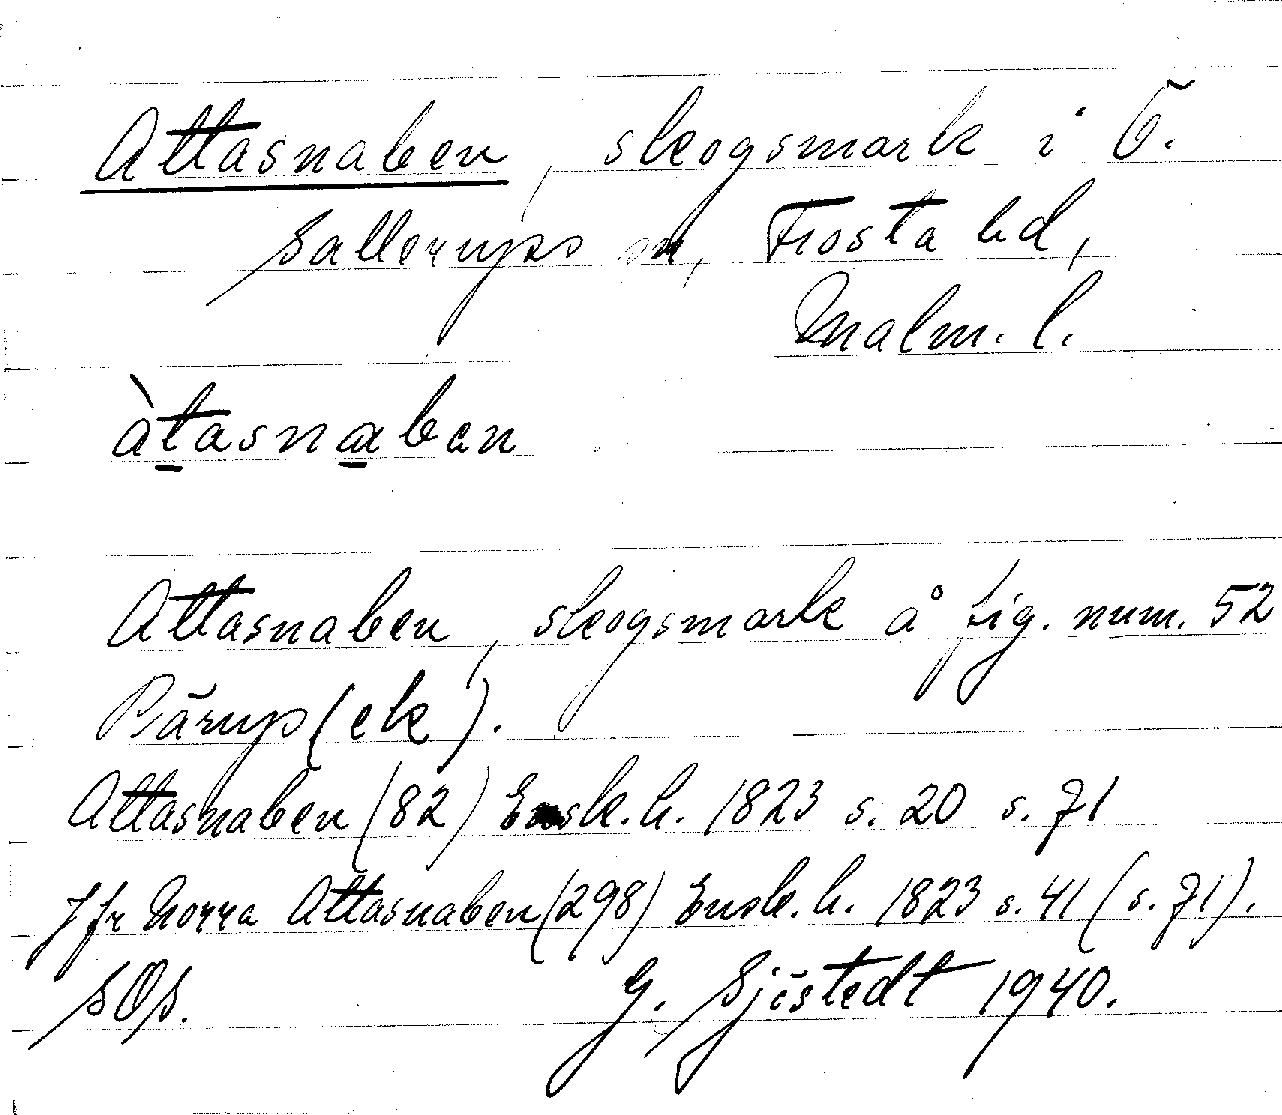 Attasnaben, skogsmark i Ö.
Sallerups sn, Frosta hd,
Malm. l.
àtasnaben
Attasnaben, skogsmark å fig. num. 52
Pärup (ek).
Attasnaben (82) Ensk.h. 1823 s. 20 s. 71
Jfr Norra Attasnaben (298) Ensk.h. 1823 s. 41 (s. 71).
SOS. G. Sjöstedt 1940.